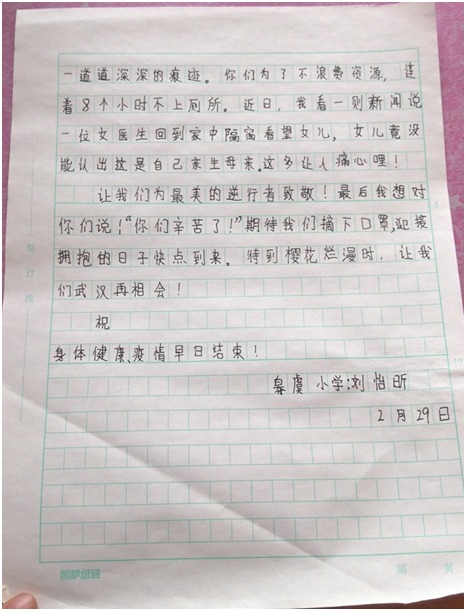 一道道深深的痕迹。你们为了不浪费资源，连
着8个小时不上厕所。近日，我看一则新闻说
一位女医生回到家中隔窗看望女儿，女儿竟没
能认出这是自己亲生母亲。这多让人痛心哩！
让我们为最美的逆行者致敬！最后我想对
你们说！“你们辛苦了！”期待我们摘下口罩，迎接
拥抱的日子快点到来。待到樱花烂漫时，让我
们武汉再相会！
祝
身体健康、疫情早日结束！
皋虞小学：刘怡昕
2月29日
装订线
5
10
第 页